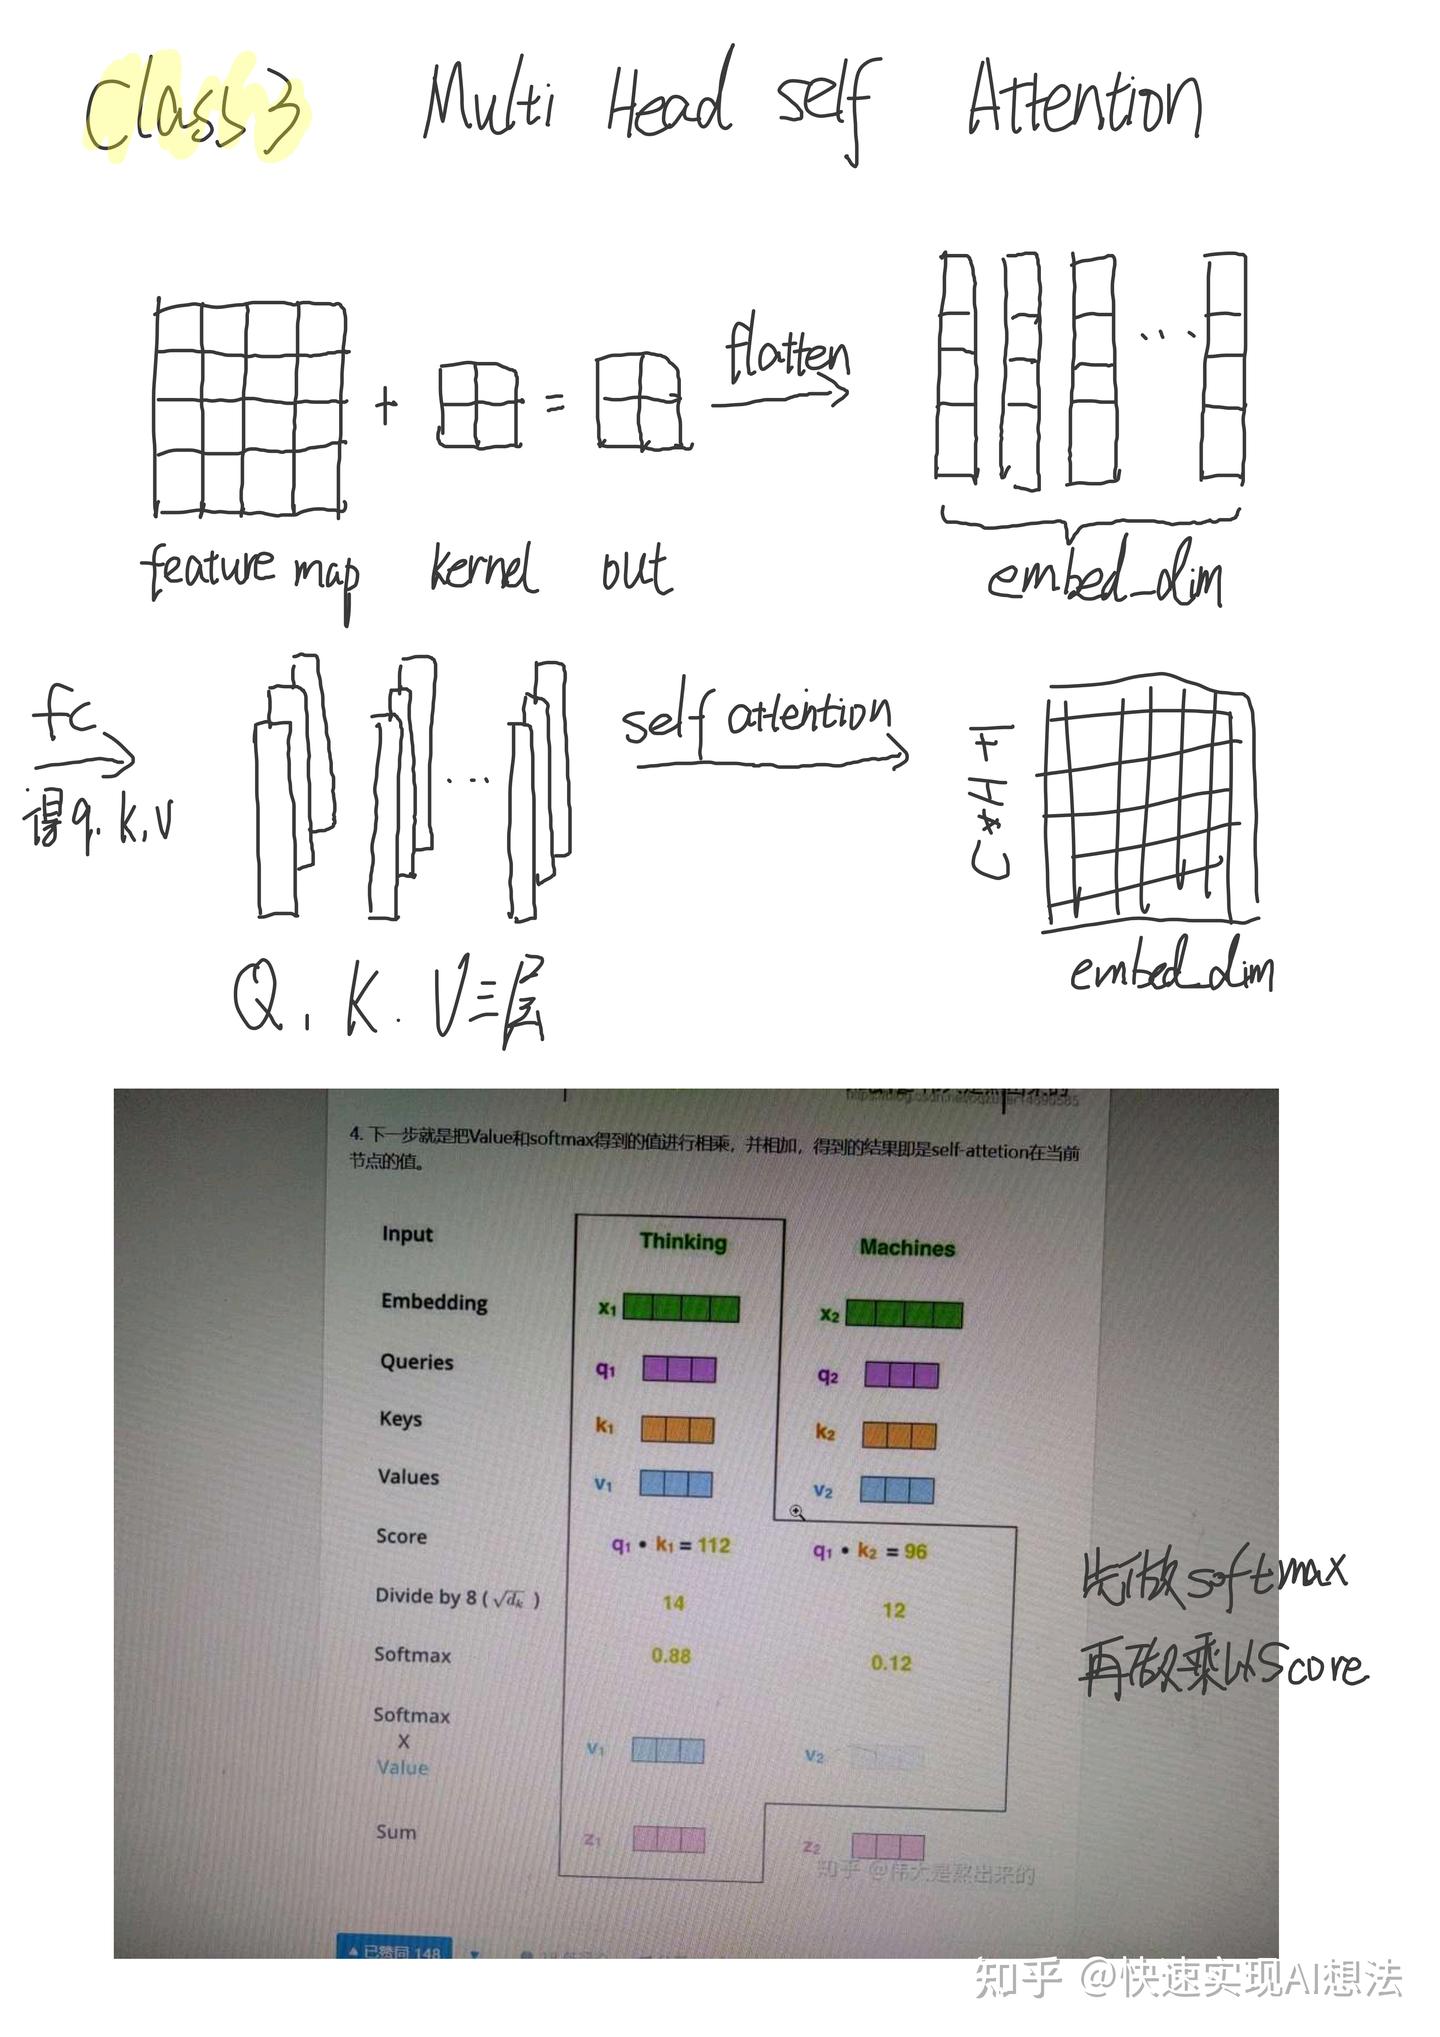 Class 3 Multi Head self Attention
flatten
+ =
feature map kernel out
embed_dim
fc
得q.k.v
self attention
C*H+1
embed_dim
Q, K. V三层
4. 下一步就是把Value和softmax得到的值进行相乘，并相加，得到的结果即是self-attetion在当前
节点的值。
Input Thinking Machines
Embedding x₁ x₂
Queries q₁ q₂
Keys k₁ k₂
Values v₁ v₂
Score q₁ • k₁ = 112 q₁ • k₂ = 96
Divide by 8 ( √dₖ ) 14 12
先做softmax
Softmax 0.88 0.12
再做乘以Score
Softmax
X
Value v₁ v₂
Sum z₁ z₂
知乎 @伟大是熬出来的
▲ 已赞同 148
知乎 @快速实现AI想法